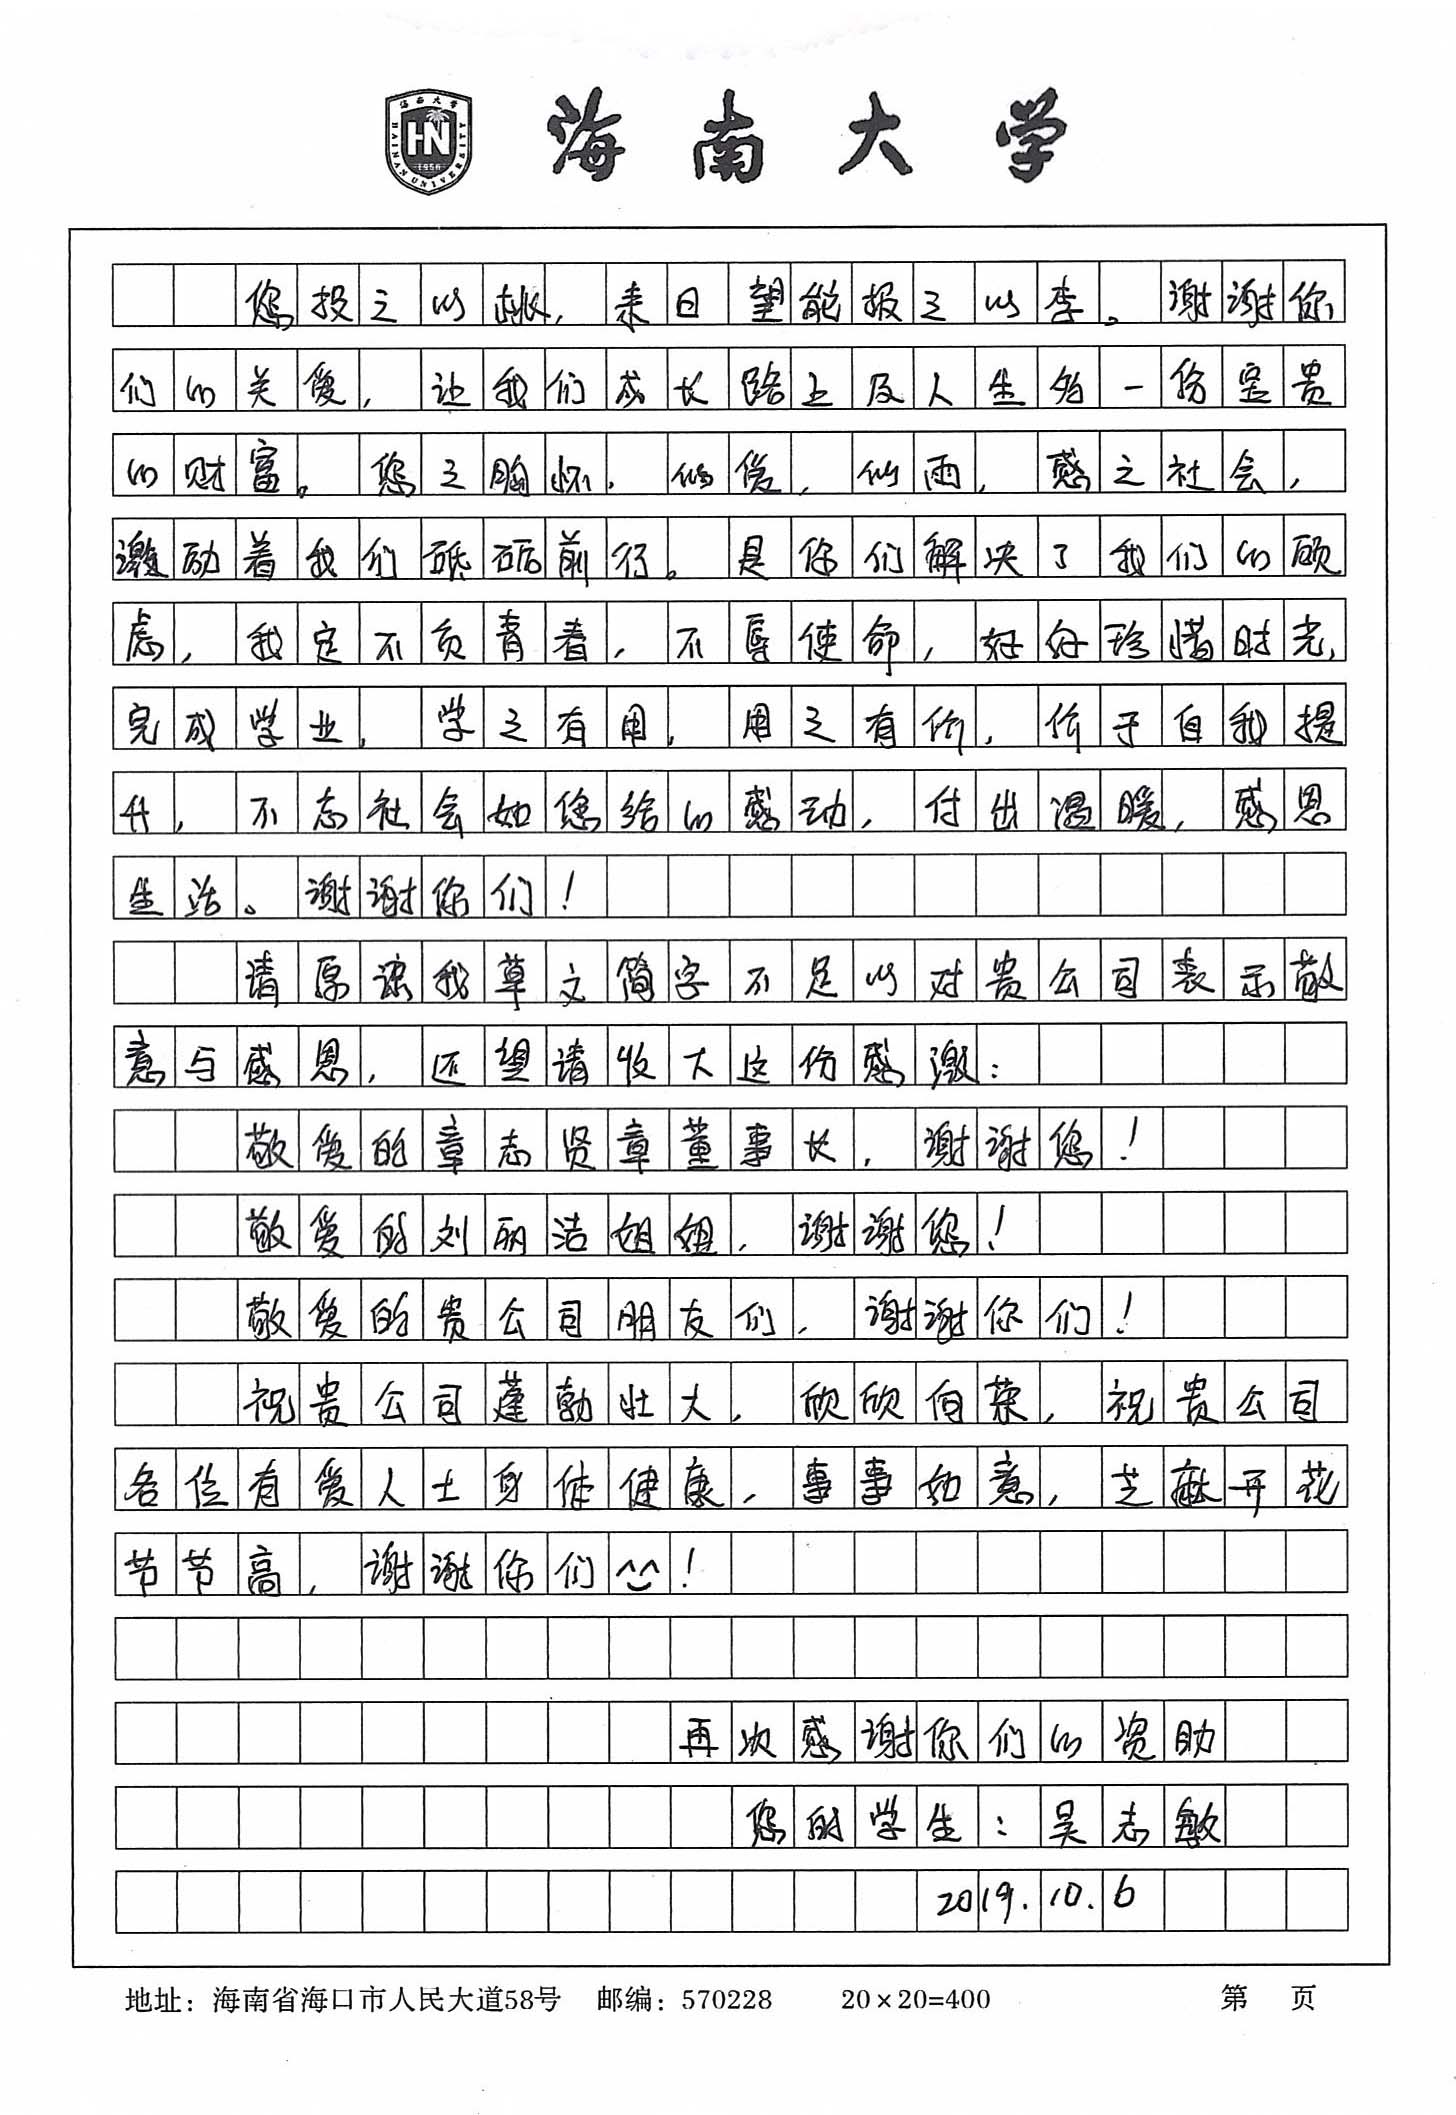 海南大学
HAINAN UNIVERSITY
1958
您投之以桃，来日望能报之以李。谢谢你
们的关爱，让我们成长路上及人生的一份宝贵
的财富。您之胸怀，似爱，似雨，感之社会，
激励着我们砥砺前行。是你们解决了我们的顾
虑，我定不负青春，不辱使命，好好珍惜时光，
完成学业，学之有用，用之有价，价于自我提
升，不忘社会如您给的感动，付出温暖，感恩
生活。谢谢你们！
请原谅我草文简字不足以对贵公司表示敬
意与感恩，还望请收下这份感激：
敬爱的章志贤章董事长，谢谢您！
敬爱的刘丽洁姐姐，谢谢您！
敬爱的贵公司朋友们，谢谢你们！
祝贵公司蓬勃壮大，欣欣向荣，祝贵公司
各位有爱人士身体健康，事事如意，芝麻开花
节节高，谢谢你们^^！
再次感谢你们的资助
您的学生：吴志敏
2019.10.6
地址：海南省海口市人民大道58号 邮编：570228 20×20=400 第 页